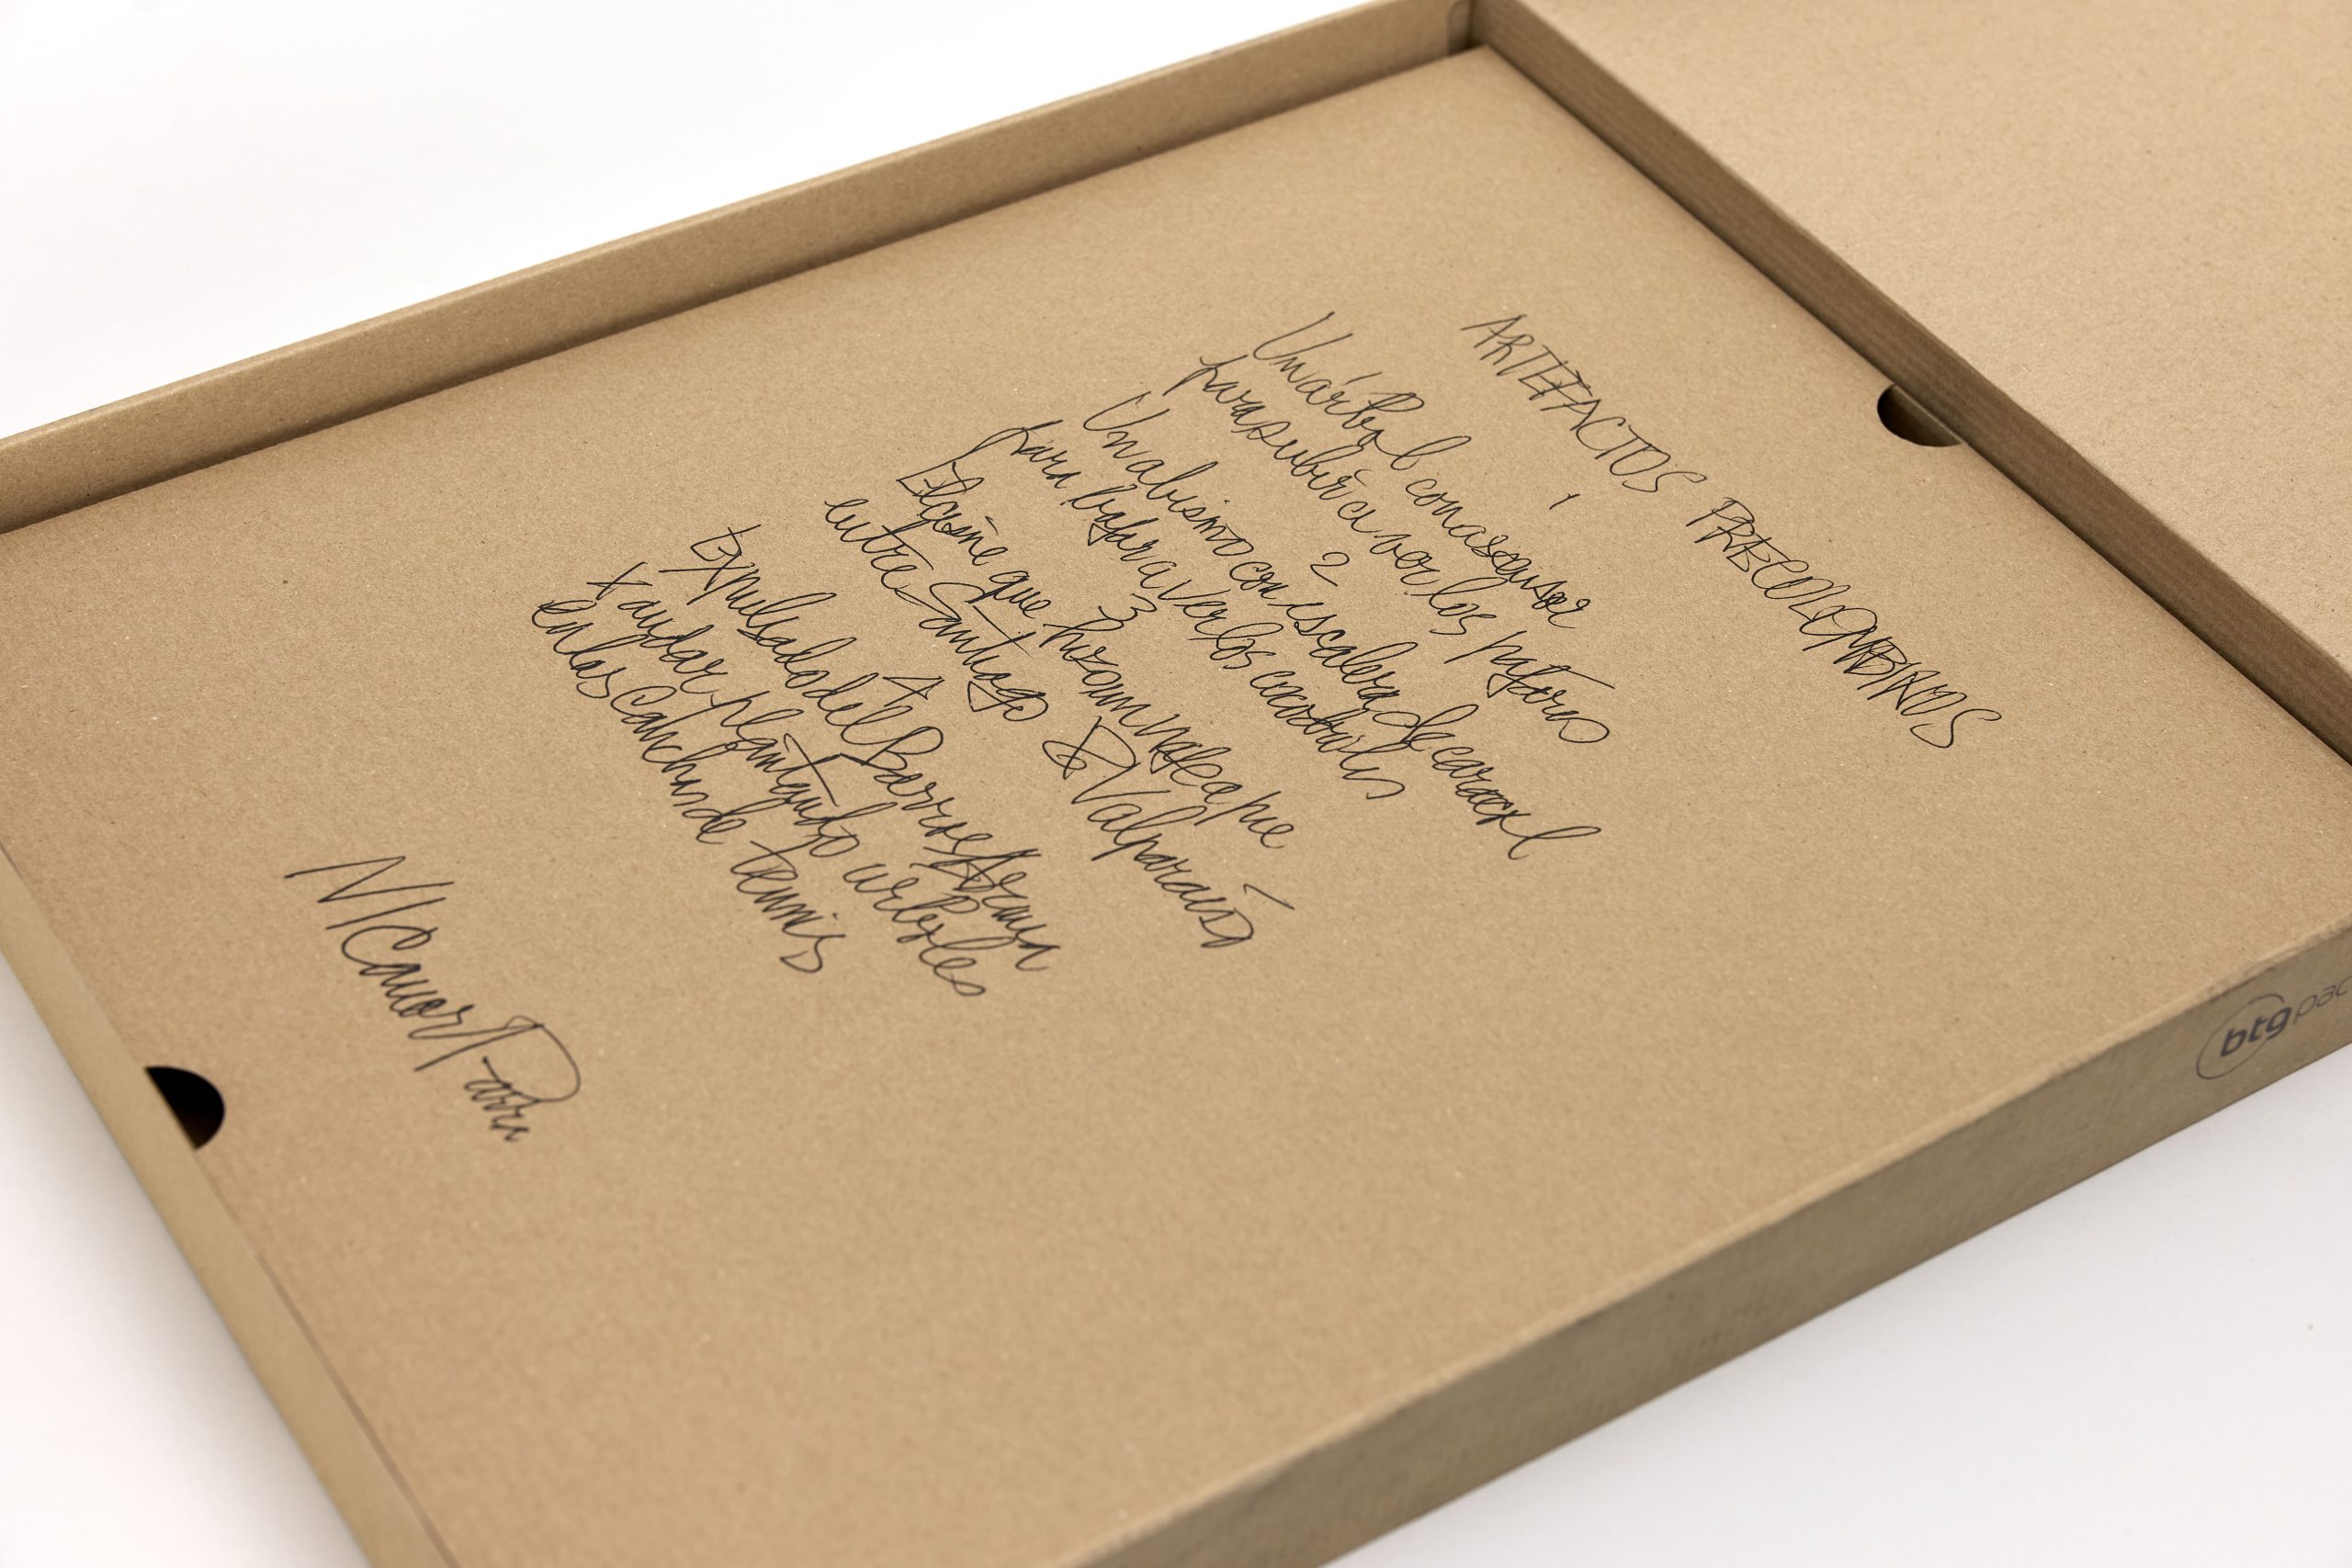 ARTEFACTOS PRECOLOMBINOS
1
Un árbol con ascensor
para subir a ver los pájaros
2
Un abismo con escalera de caracol
para bajar a ver los cocodrilos
3
El cisne que hizo un naſe a pie
entre Santiago & Valparaíso
4
Expulsado del Barros Arana
x andar plantando árboles
en las canchas de tennis
NICanor Parra
btg pac